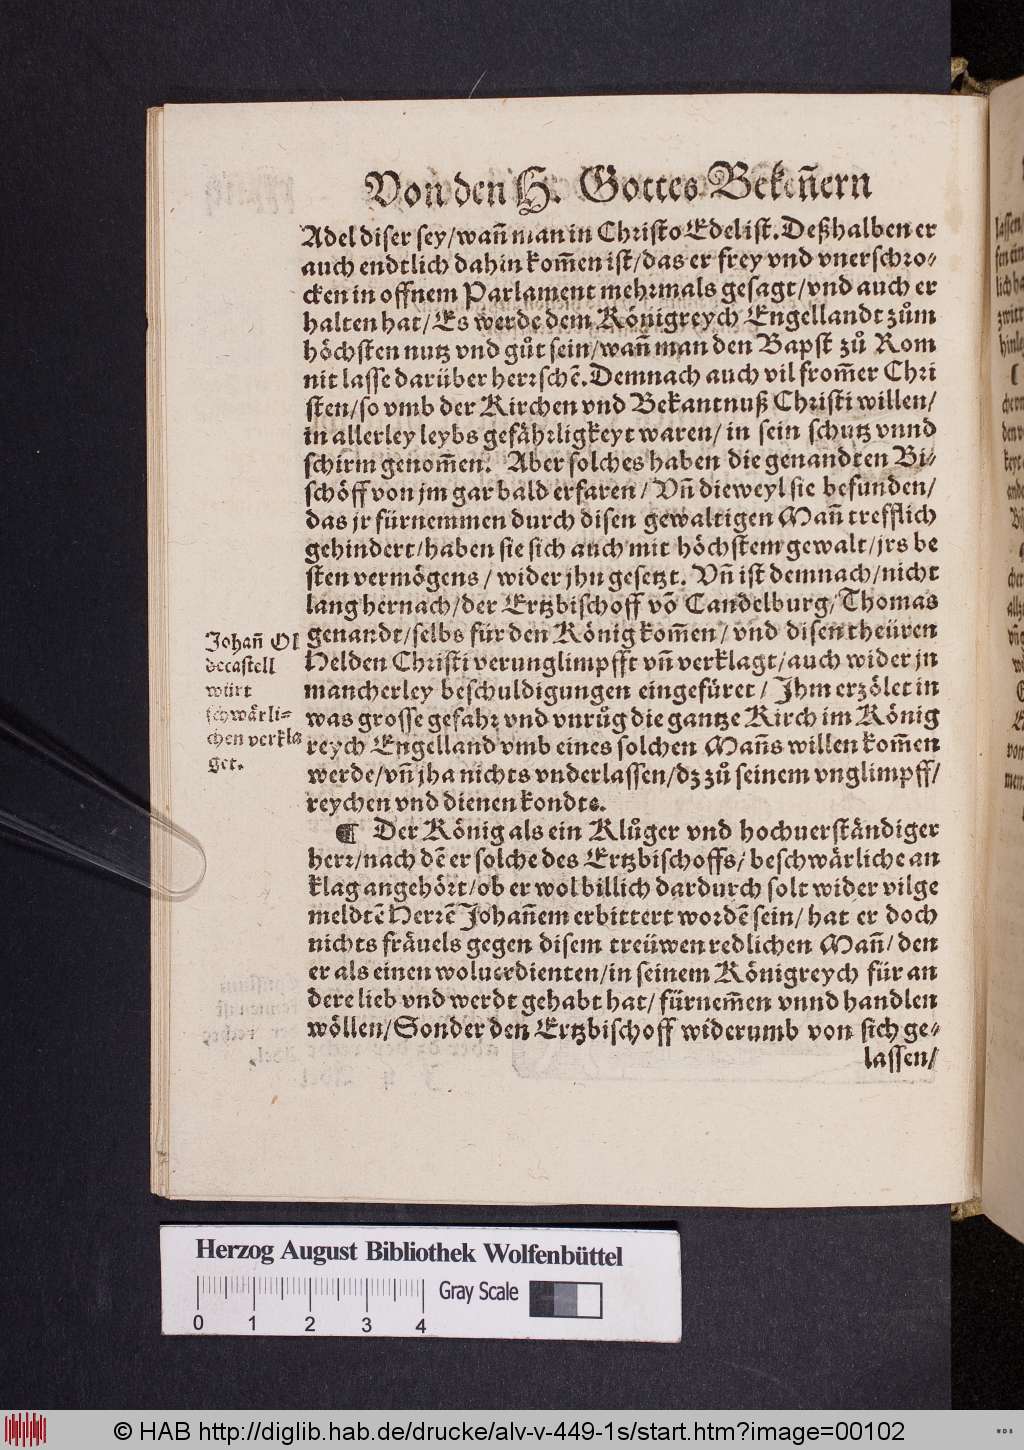 Von den H. Gottes Bekeñern
Adel diser sey/wañ man in Christo Edel ist. Deßhalben er
auch endtlich dahin kom̃en ist/das er frey vnd vnerschro-
cken in offnem Parlament mehrmals gesagt/vnd auch er
halten hat/Es werde dem Königreych Engellandt zům
höchsten nutz vnd gůt sein/wañ man den Bapst zů Rom
nit lasse darüber herrschẽ. Demnach auch vil from̃er Chri
sten/so vmb der Kirchen vnd Bekantnuß Christi willen/
in allerley leybs gefährligkeyt waren/ in sein schutz vnnd
schirm genom̃en. Aber solches haben die genandten Bi-
schöff von jm gar bald erfaren/ Vñ dieweyl sie befunden/
das jr fürnemmen durch disen gewaltigen Mañ trefflich
gehindert/haben sie sich auch mit höchstem gewalt/jrs be
sten vermögens/ wider jhn gesetzt. Vñ ist demnach/nicht
lang hernach/der Ertzbischoff võ Candelburg/Thomas
genandt/selbs für den König kom̃en/ vnd disen theüren
Helden Christi verunglimpfft vñ verklagt/auch wider jn
mancherley beschuldigungen eingefüret/ Ihm erzölet in
was grosse gefahr vnd vnrůg die gantze Kirch im König
reych Engelland vmb eines solchen Mañs willen kom̃en
werde/vñ jha nichts vnderlassen/dz zů seinem vnglimpff/
reychen vnd dienen kondte.
Johañ Ol
decastell
würt
schwärli-
chen verkla
get.
¶ Der König als ein Klůger vnd hochuerständiger
herr/nach dẽ er solche des Ertzbischoffs/ beschwärliche an
klag angehört/ob er wol billich dardurch solt wider vilge
meldtẽ Herrẽ Johañem erbittert wordẽ sein/ hat er doch
nichts fräuels gegen disem treüwen redlichen Mañ/ den
er als einen woluerdienten/in seinem Königreych für an
dere lieb vnd werdt gehabt hat/ fürnem̃en vnnd handlen
wöllen/Sonder den Ertzbischoff widerumb von sich ge-
lassen/
lassen
Herzog August Bibliothek Wolfenbüttel
Gray Scale
0 1 2 3 4
© HAB http://diglib.hab.de/drucke/alv-v-449-1s/start.htm?image=00102